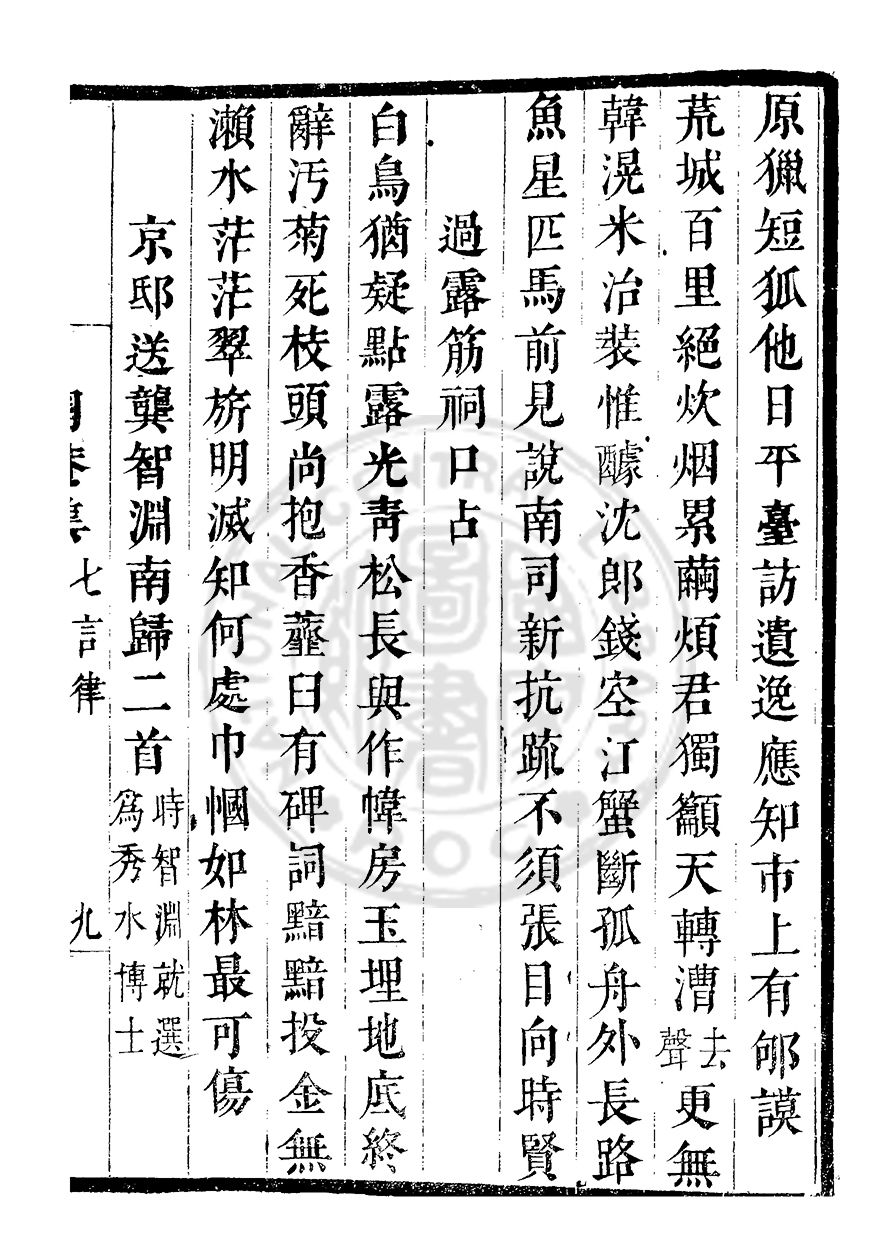 原獵短狐他日平臺訪遺逸應知市上有郇謨
荒城百里絕炊烟累繭煩君獨籲天轉漕去聲更無
韓滉米治裝惟醵沈郎錢空江蟹斷孤舟外長路
魚星匹馬前見說南司新抗疏不須張目向時賢
過露筋祠口占
白鳥猶疑點露光靑松長與作幃房玉埋地底終
辭汚菊死枝頭尚抱香虀臼有碑詞黯黯投金無
瀨水茫茫翠旂明滅知何處巾幗如林最可傷
京邸送龔智淵南歸二首時智淵就選爲秀水博士
七言律
九